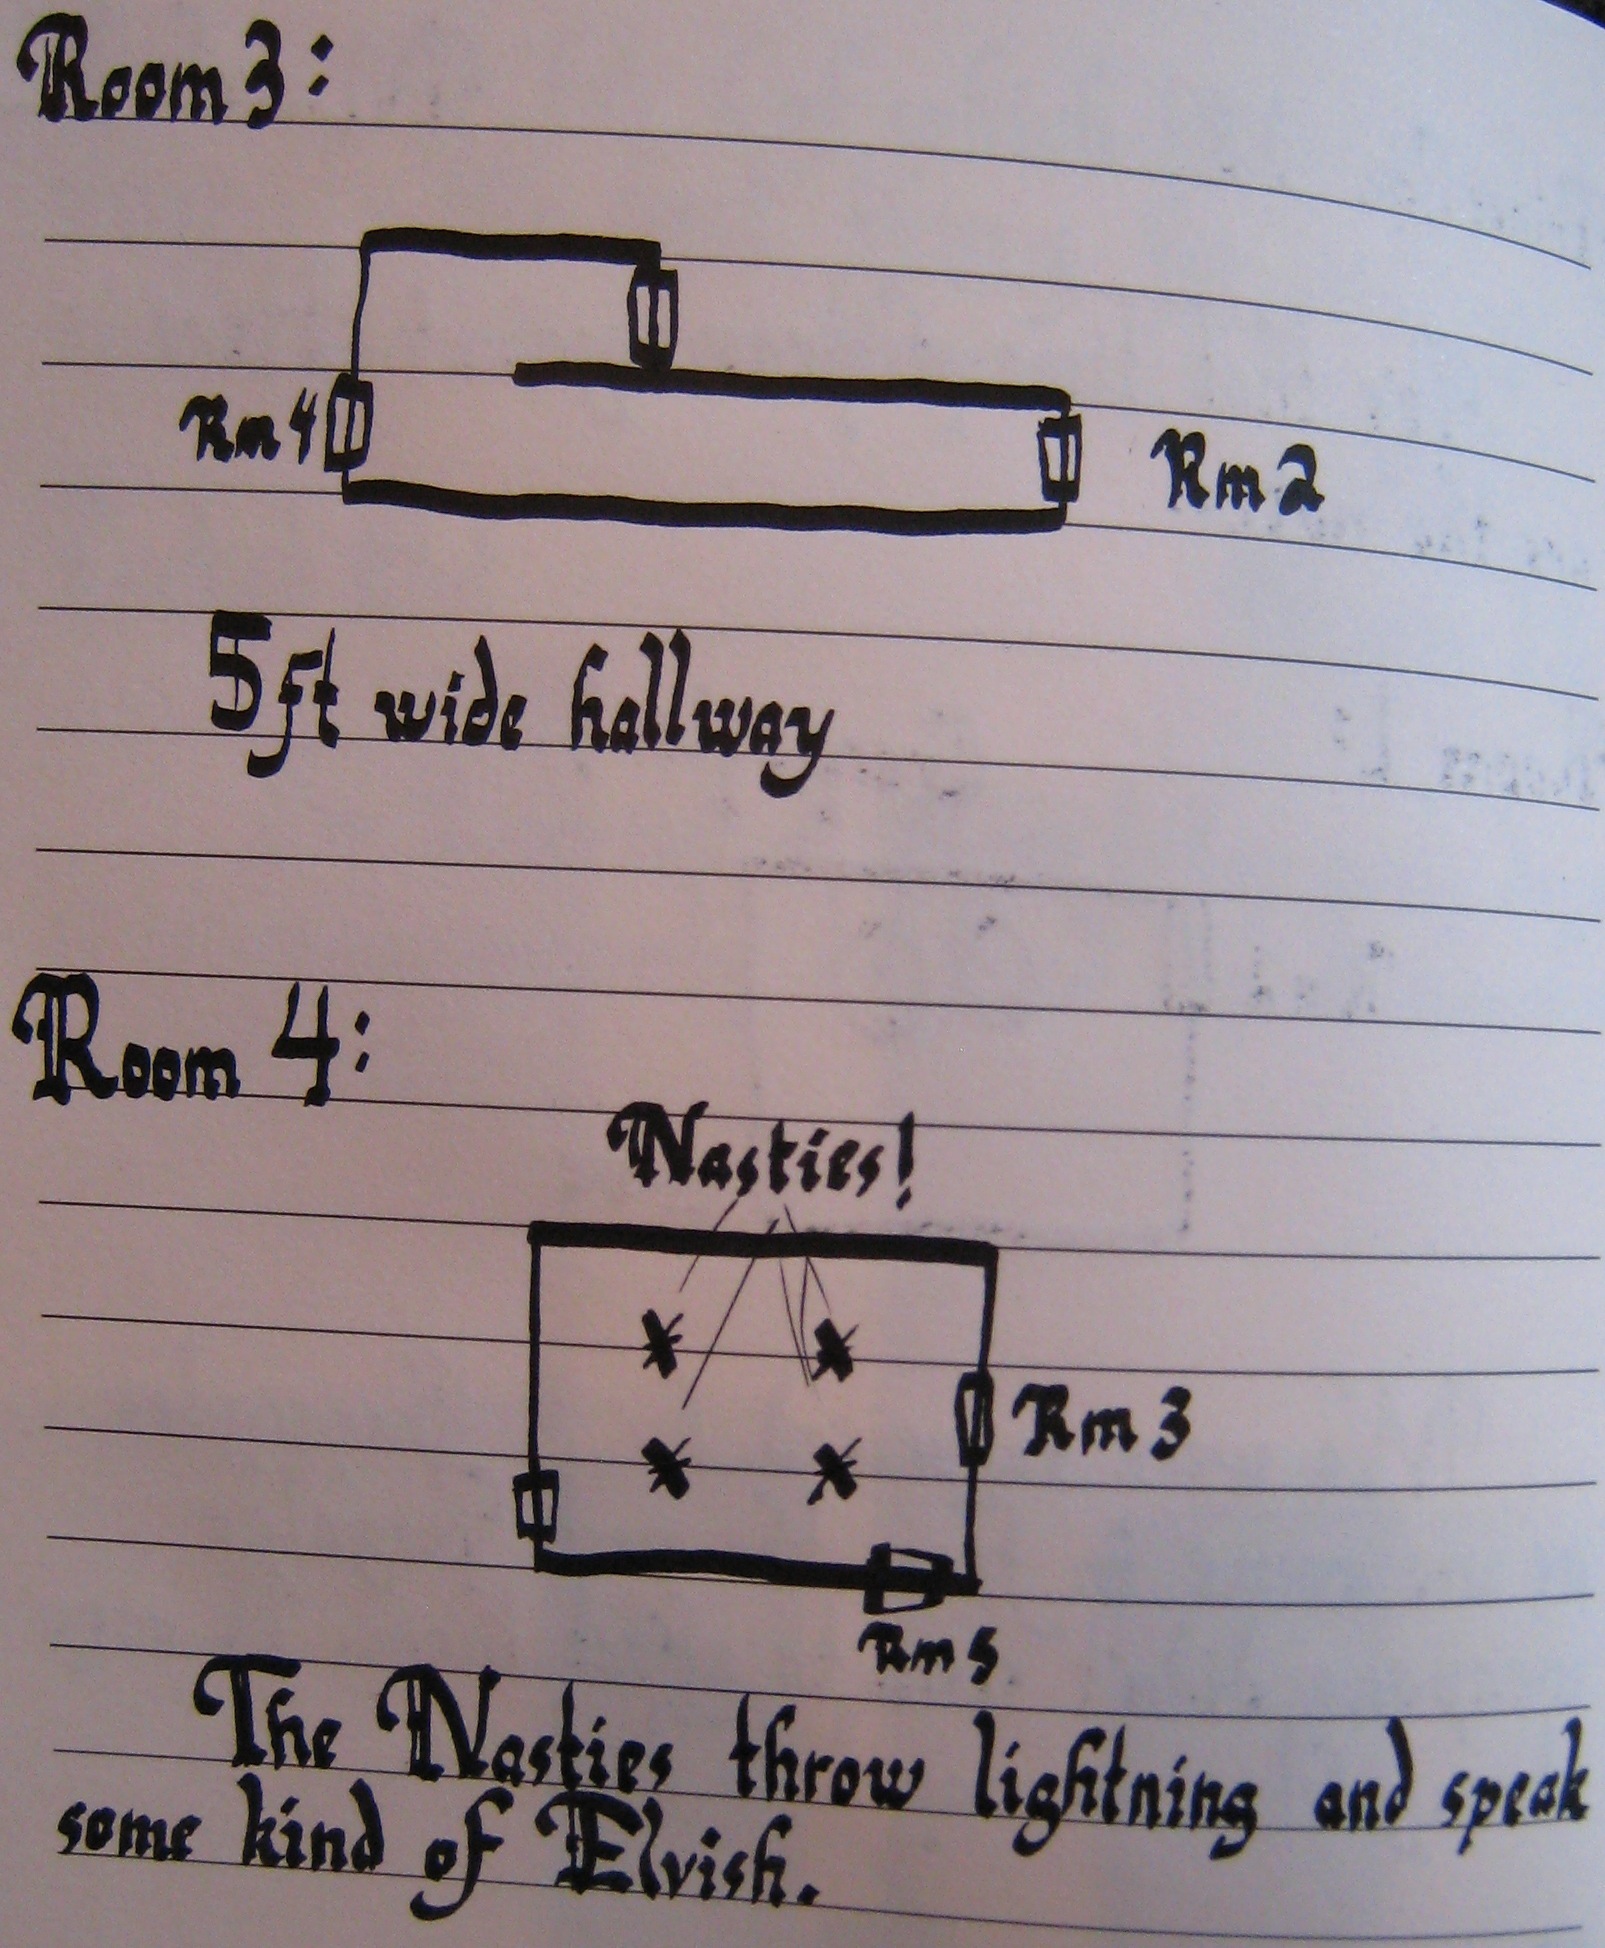 Room 3:
Rm 4
Rm 2
5ft wide hallway
Room 4:
Nasties!
Rm 3
Rm 5
The Nasties throw lightning and speak
some kind of Elvish.